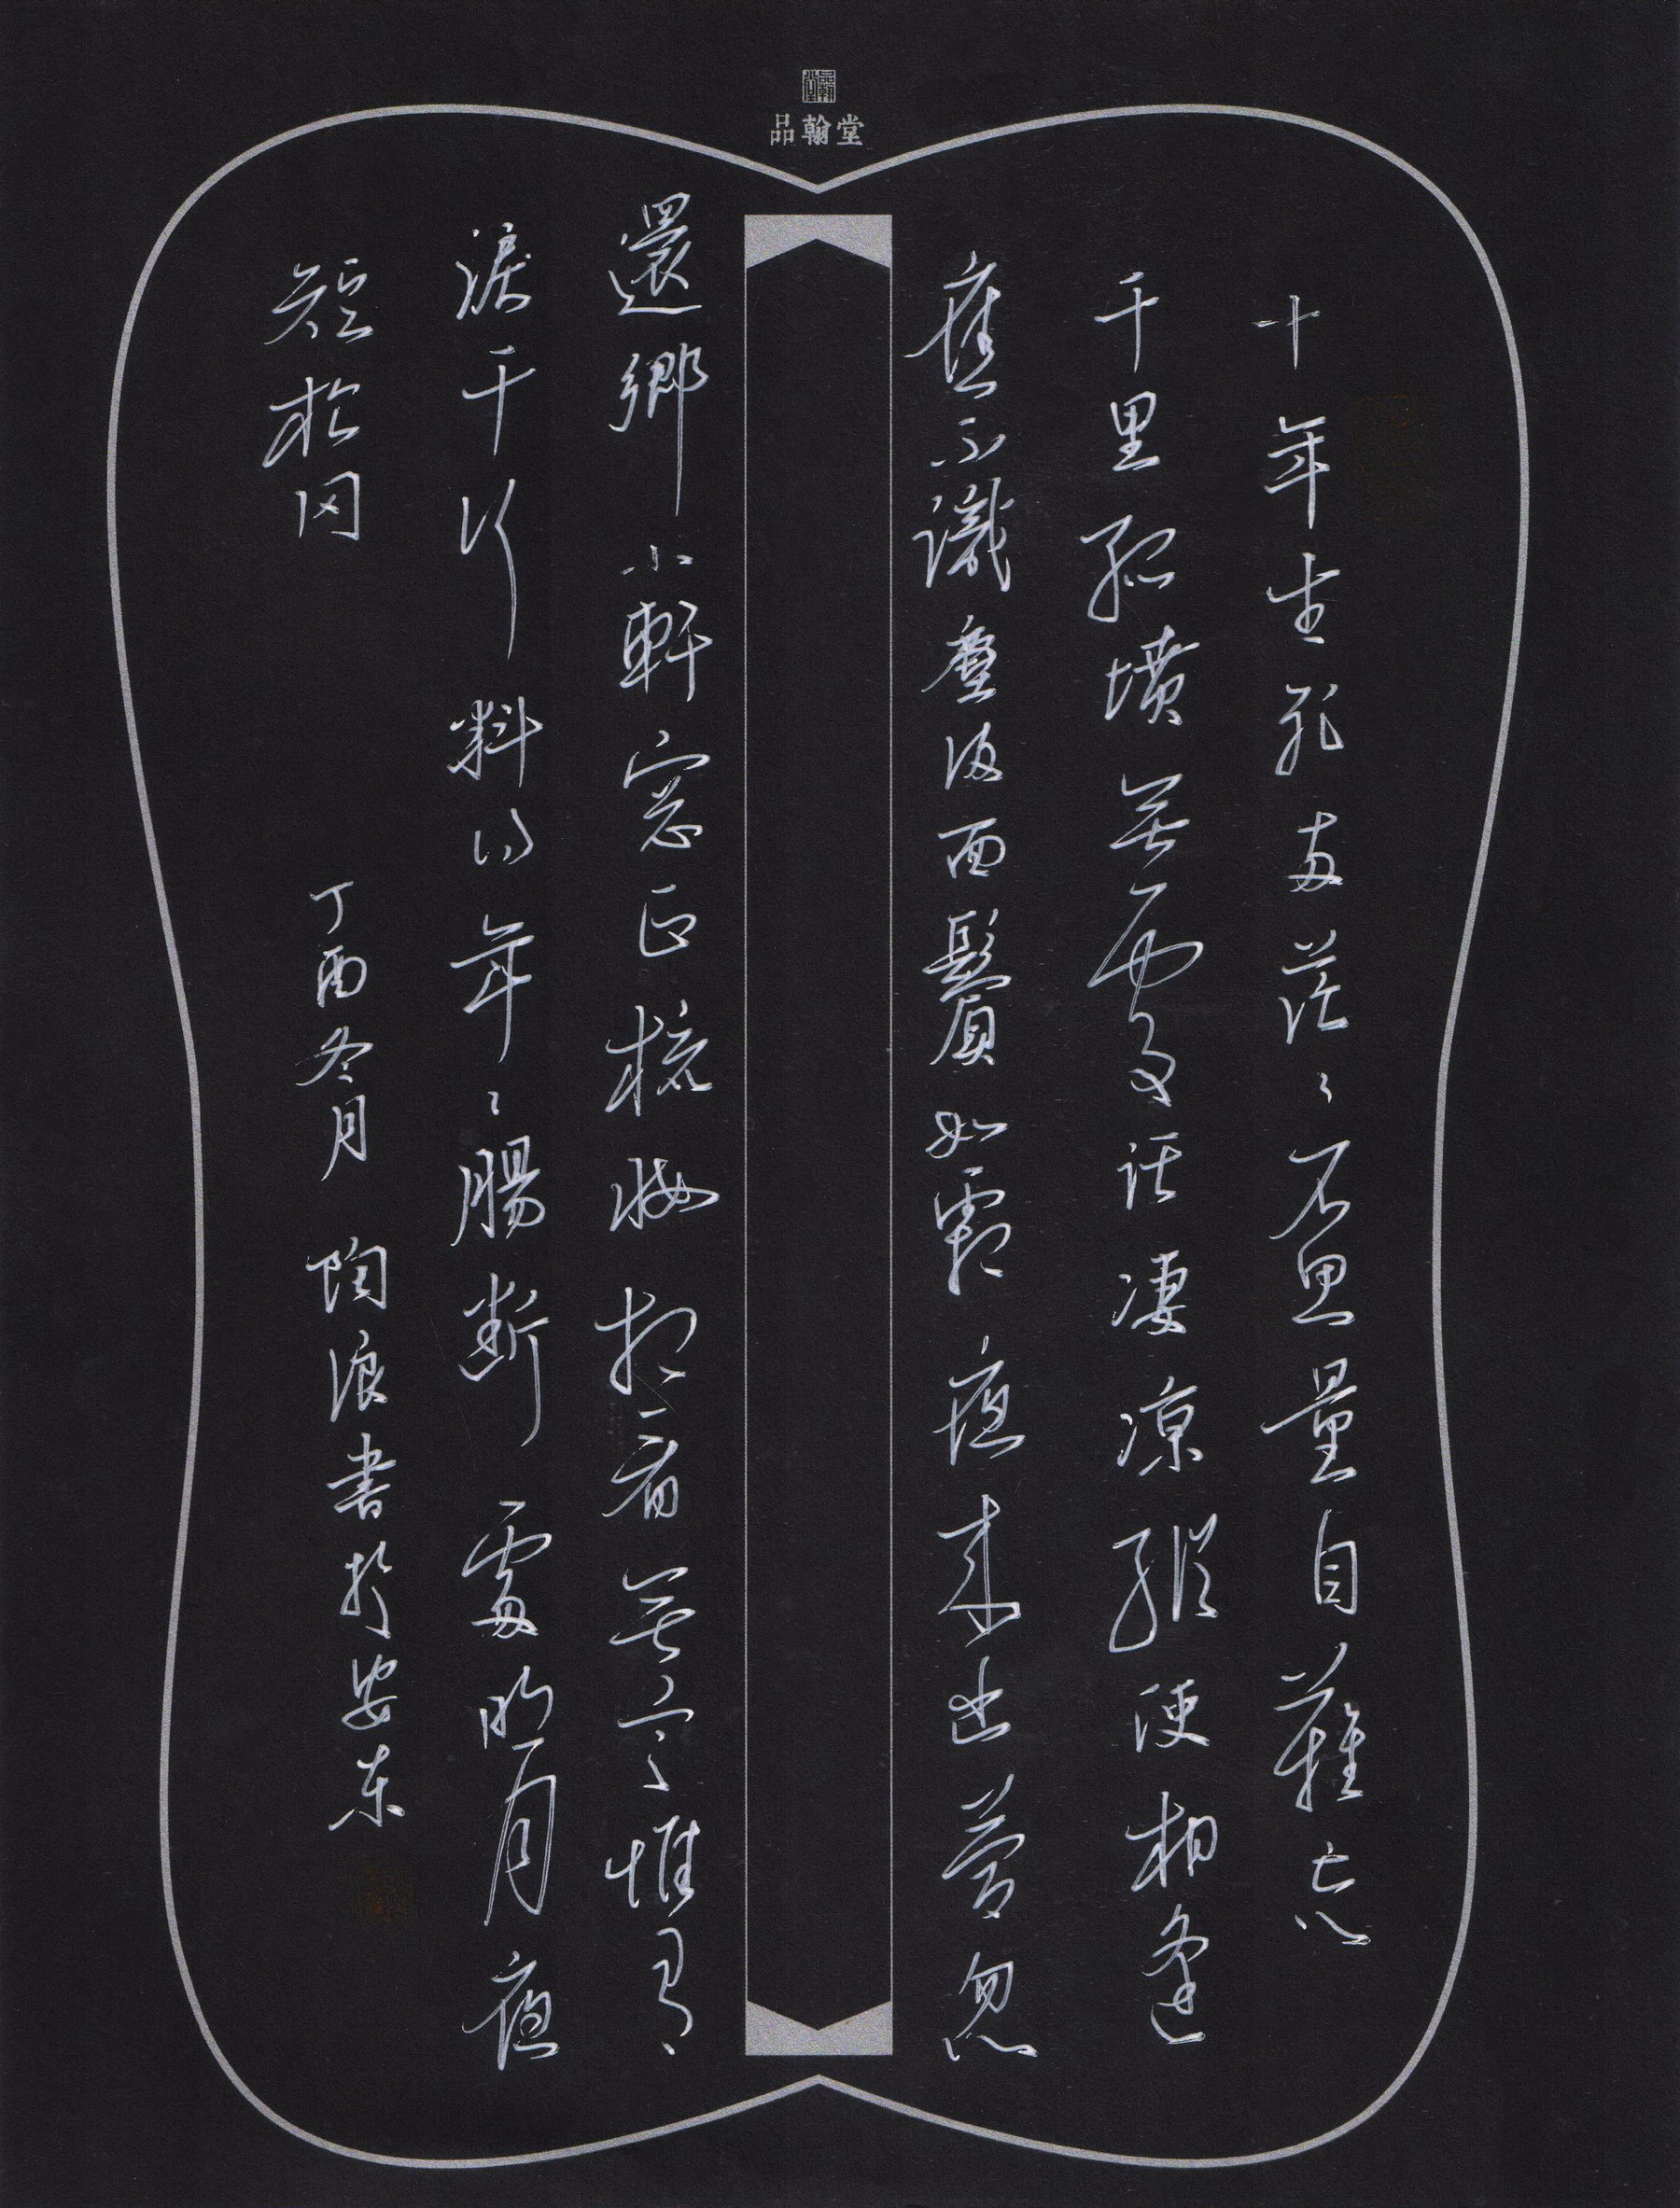 品翰堂
十年生死两茫々不思量自難忘
千里孤墳無處話凄凉縱使相逢
應不識塵滿面鬢如霜夜来幽夢忽
還鄉小軒窓正梳妝相看無言惟有
淚千行料得年々腸斷處明月夜
短松冈
丁酉冬月 陶浪書於安东